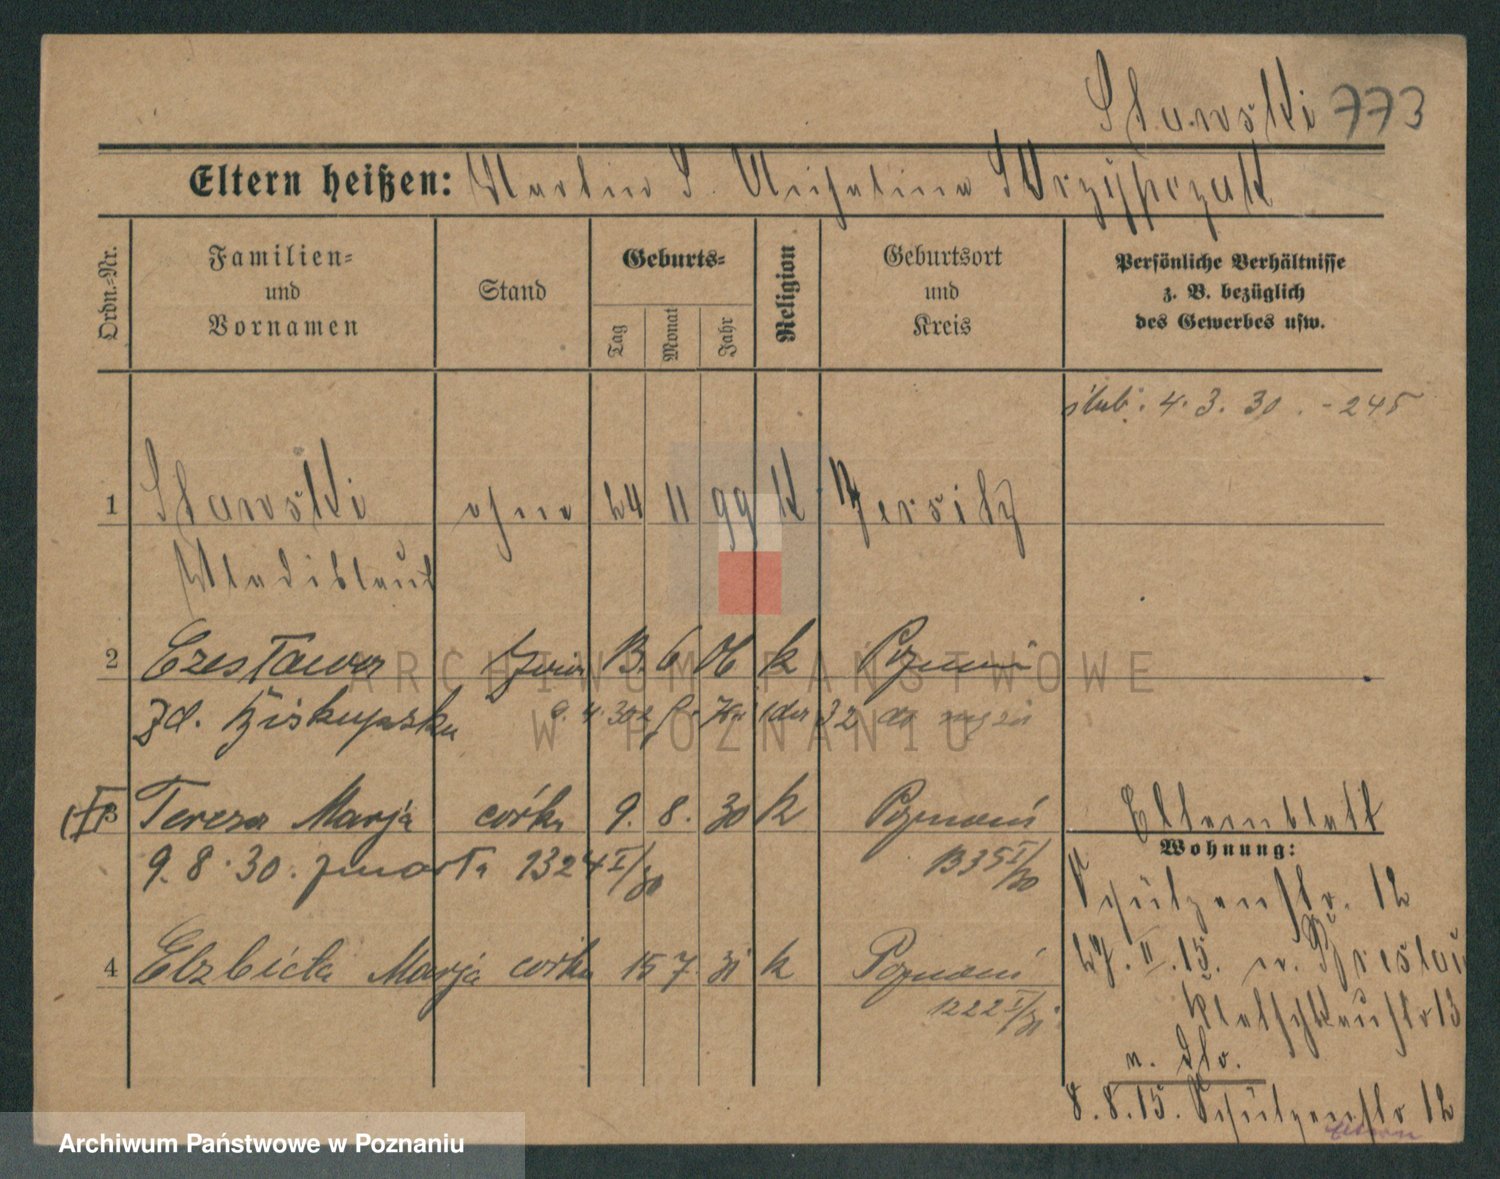 Stawski 773
Eltern heißen: Martin S. Michalina Skrzypczak
Ordn.-Nr.
Familien-
und
Vornamen
Stand
Geburts-
Tag
Monat
Jahr
Religion
Geburtsort
und
Kreis
Persönliche Verhältnisse
z. B. bezüglich
des Gewerbes usw.
ślub. 4.3.30. - 245
1 Stawski ohne 24 11 99 K Jersitz
Wladislaus
2 Czesława żona 13. 6 06 k Poznań
Zd. Biskupska
3 Teresa Marja córka 9. 8. 30 k Poznań
9.8.30. zmarła 1324 I/30
1335 I/30
4 Elżbieta Marja córka 15 7. 31 k Poznań
1222 I/31
Elternblatt
Wohnung:
Schützenstr. 12
27. II. 15. n. Breslau
13
n. Str.
8.8.15. Schützenstr 12
ARCHIWUM PAŃSTWOWE
W POZNANIU
Archiwum Państwowe w Poznaniu